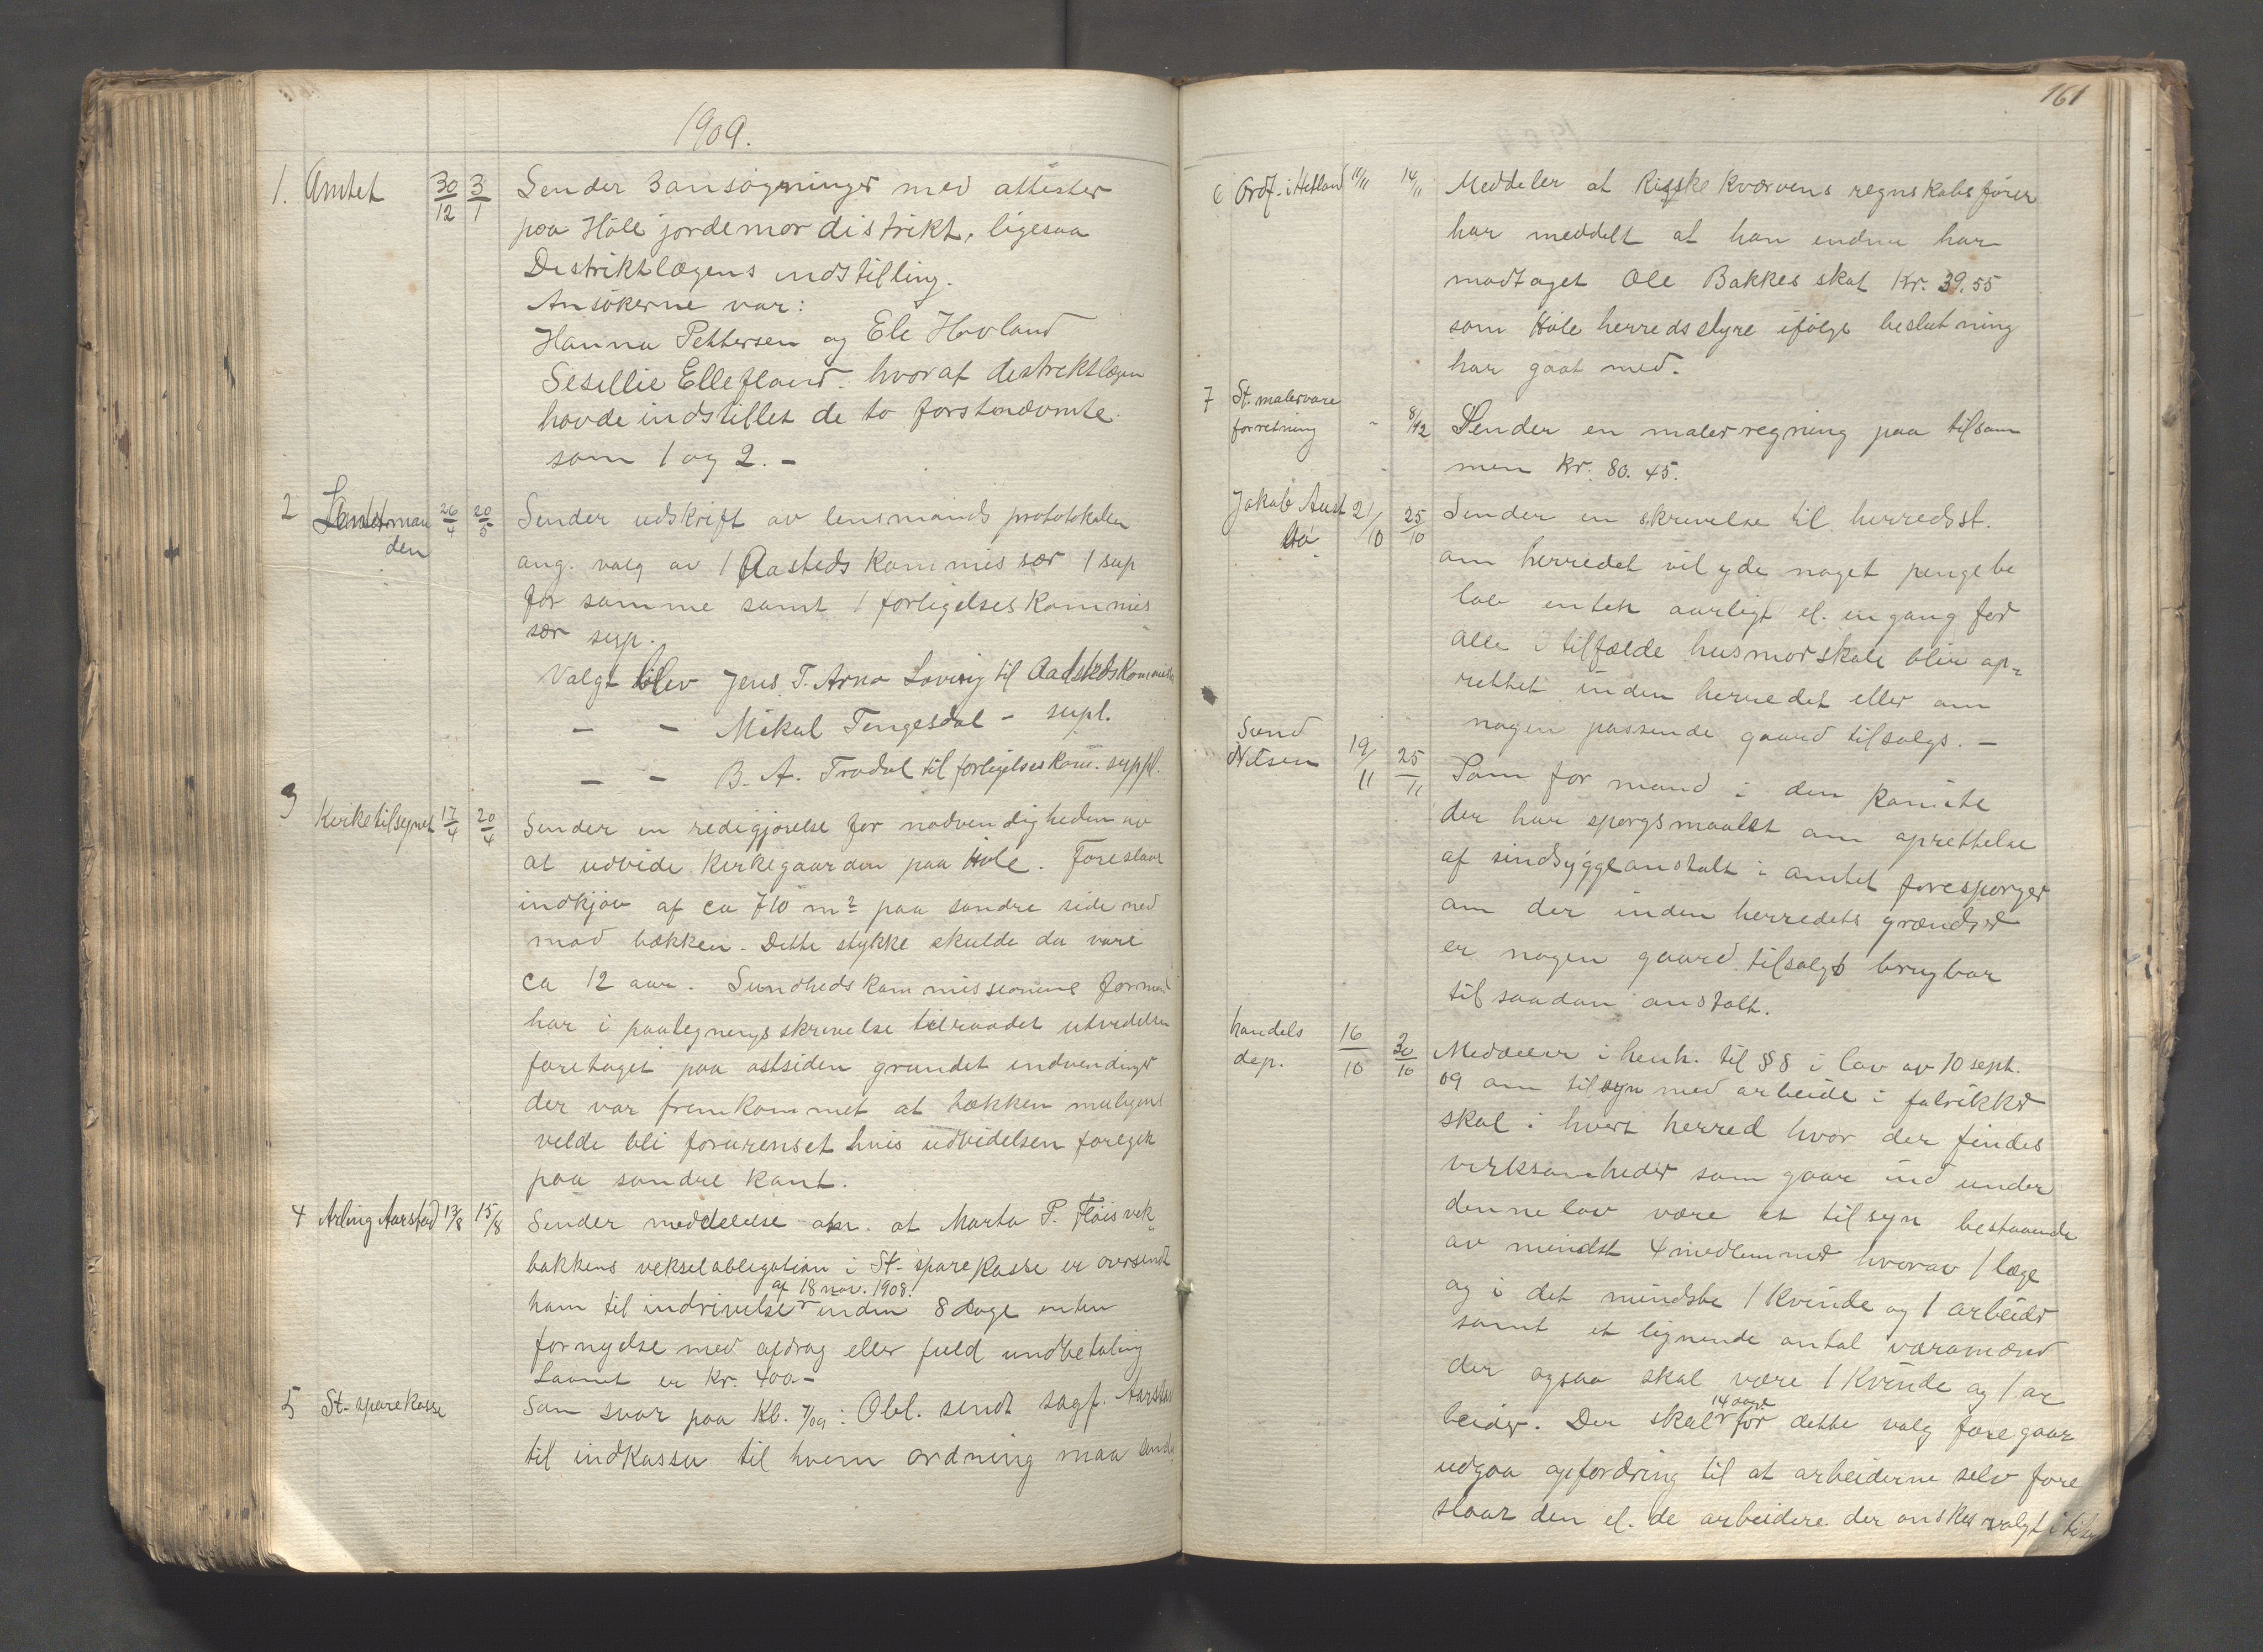 1909.
1. Amtet 30/12 3/1 Sender 3 ansøgninger med attester
paa Høle jordemordistrikt, ligesaa
Distriktlægens indstilling.
Ansøkerne var:
Hanna Pettersen og Ele Hovland
Sesillie Ellefland. hvoraf distriktlægen
havde indstillet de to førstnævnte
som 1 og 2. –
2 Lensmanden 26/4 20/5 Sender udskrift av lensmands protokollen
ang. valg av 1 Aasteds kommissær 1 sup
for samme samt 1 forligelseskommis
sær sup.
Valgt blev Jens T. Arno Løvig til Aastedskommissær
– – Mikal Tengesdal – supl.
– – B. A. Trodal til forligelseskom. suppl.
3 Kirketilsynet 17/4 20/4 Sender en redigjørelse for nødvendigheden av
at udvide kirkegaarden paa Høle. Foreslaar
indkjøv af ca 710 m2 paa søndre side ned
mod bækken. Dette stykke skulde da vare
ca 12 aar. Sundhedskommissionens formand
har i paategningsskrivelse tilraadet utvidelsen
foretaget paa østsiden grundet indvendinger
der var fremkommet at bækken muligens
vilde bli forurenset hvis udvidelsen foregik
paa søndre kant.
4 Arling Aarstad 13/8 15/8 Sender meddelelse om at Marta P. Fløisvik
bakkens vekselobligation i St. sparekasse er oversendt
af 18 nov. 1908.
ham til indrivelse inden 8 dage enten
fornyelse med afdrag eller fuld indbetaling
Laanet er Kr. 400 –
5 St. sparekasse Som svar paa Kb. 7/09: Obl. sendt sagf. Aarstad
til indkasso til hvem ordning maa
161
6 Ordf. i Hetland 11/11 14/11 Meddeler at Riske Kværvens regnskabsfører
har meddelt at han endnu har
modtaget Ole Bakkes skat Kr. 39.55
som Høle herredsstyre ifølge beslutning
har gaat med.
7 St. malervare
forretning - 8/12 Sender en malerregning paa tilsam
men Kr. 80.45.
Jakob Aust
bø 21/10 25/10 Sender en skrivelse til herredsst.
om herredet vil yde noget pengebe
løb enten aarligt el. engang for
alle i tilfælde husmorskole blir op=
rettet inden herredet eller om
nogen passende gaard tilsalgs. –
Sund
Nilsen 19/11 25/11 Som formand i den komite
der har spørgsmaalet om oprettelse
af sindsygeanstalt i amtet forespørger
om der inden herredets grændser
er nogen gaard tilsalgs brugbar
til saadan anstalt.
handels
dep. 16/10 30/10 Meddeler i henh. til § 8 i lov av 10 sept.
09 om tilsyn med arbeide i fabrikker
skal i hvert herred hvor der findes
virksomheder som gaar ind under
denne lov være et tilsyn bestaaende
av mindst 4 medlemmer hvorav 1 læge
og i det mindste 1 kvinde og 1 arbeider
samt et lignende antal varamænd
der ogsaa skal være 1 kvinde og 1 ar
14 dage
beider. Der skal før dette valg foregaar
udgaa opfordring til at arbeiderne selv fore
slaar den el. de arbeidere der ønskes valgt i